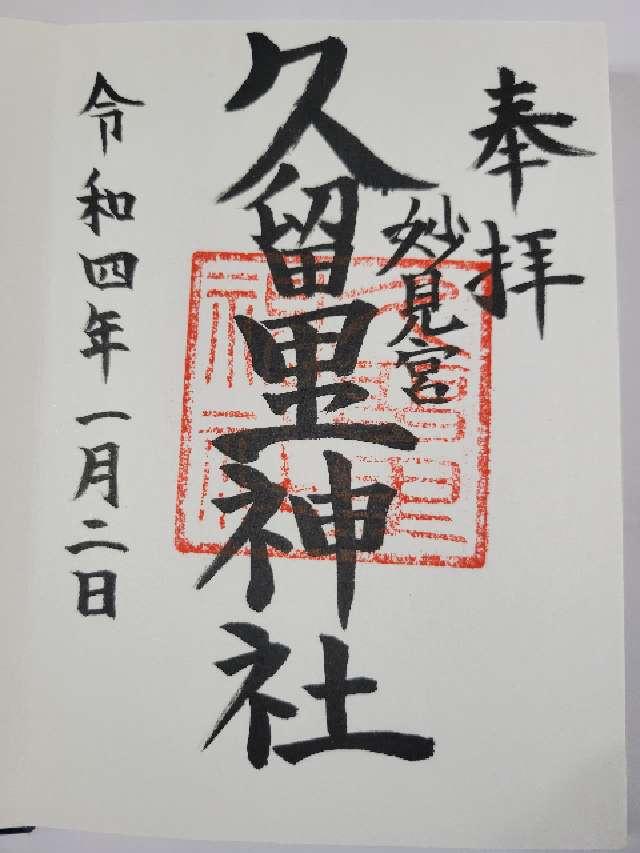 奉拝
妙見宮
久留里神社
令和四年一月二日